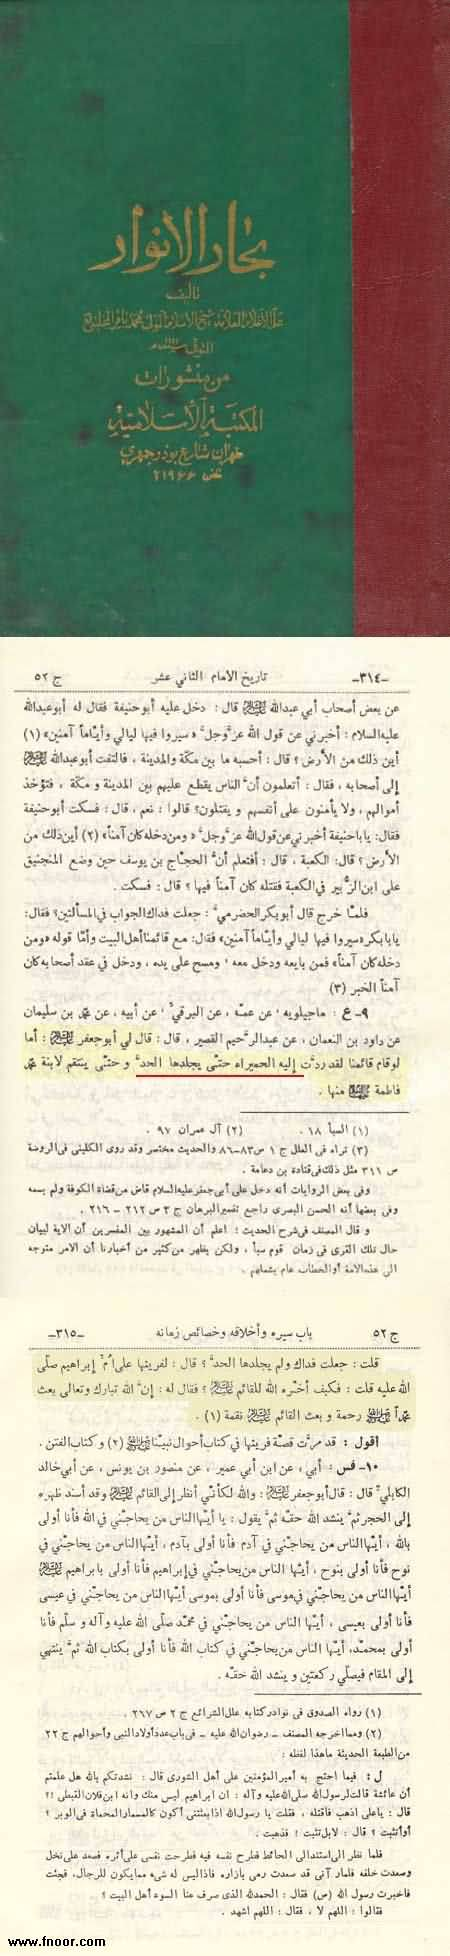 بحار الأنوار
تأليف
علم الأعلام العلامة شيخ الاسلام المولى محمد باقر المجلسي
المتوفى سنة
من منشورات
المكتبة الأسلامية
طهران شارع بوذرجمهري
تلفن ٢١٩٦٦
-٣١٤- تاريخ الامام الثاني عشر ج ٥٢
عن بعض أصحاب أبي عبدالله عليه السلام قال : دخل عليه أبوحنيفة فقال له أبوعبدالله
عليه السلام : أخبرني عن قول الله عزَّ وجلَّ « سيروا فيها ليالي وأيّاماً آمنين » (١)
أين ذلك من الأرض ؟ قال : أحسبه ما بين مكّة والمدينة ، فالتفت أبوعبدالله عليه السلام
إلى أصحابه ، فقال : أتعلمون أنَّ الناس يقطع عليهم بين المدينة و مكّة ، فتؤخذ
أموالهم ، ولا يأمنون على أنفسهم و يقتلون؟ قالوا : نعم ، قال : فسكت أبوحنيفة
فقال: ياباحنيفة أخبرني عن قول الله عزَّ وجلَّ « ومن دخله كان آمناً» (٢) أين ذلك من
الأرض ؟ قال: الكعبة ، قال : أفتعلم أنَّ الحجّاج بن يوسف حين وضع المنجنيق
على ابن الزُّبير في الكعبة فقتله كان آمناً فيها ؟ قال : فسكت .
فلمّا خرج قال أبوبكر الحضرميُّ : جعلت فداك الجواب في المسألتين؟ فقال:
يابابكر «سيروا فيها ليالي وأيّاماً آمنين» فقال: مع قائمنا أهل البيت وأمّا قوله «ومن
دخله كان آمناً» فمن بايعه ودخل معه ، ومسح على يده ، ودخل في عقد أصحابه كان
آمناً الخبر (٣)
٩- ع : ماجيلويه ، عن عمّه ، عن البرقيِّ ، عن أبيه ، عن محمد بن سليمان
عن داود بن النعمان ، عن عبدالرَّحيم القصير ، قال : قال لي أبوجعفر عليه السلام : أما
لوقام قائمنا لقد ردَّت إليه الحميراء حتّى يجلدها الحدَّ و حتّى ينتقم لابنة محمد
فاطمة عليها السلام منها .
(١) السبأ ١٨ . (٢) آل عمران ٩٧ .
(٣) تراه في العلل ج ١ ص ٨٣-٨٦ والحديث مختصر وقد روى الكليني في الروضة
ص ٣١١ مثل ذلك في قتادة بن دعامة .
وفي بعض الروايات أنه دخل على أبي جعفر عليه السلام قاض من قضاة الكوفة ولم يسمه
وفي بعضها أنه الحسن البصرى راجع تفسير البرهان ج ٣ ص ٢١٢ - ٢١٦ .
و قال المصنف في شرح الحديث : اعلم أن المشهور بين المفسرين أن الاية لبيان
حال تلك القرى في زمان قوم سبأ ، ولكن يظهر من كثير من أخبارنا أن الامر متوجه
الى هذه الامة أو الخطاب عام يشملهم .
ج ٥٢ باب سيره وأخلاقه وخصائص زمانه -٣١٥-
قلت : جعلت فداك ولم يجلدها الحدَّ ؟ قال : لفريتها على اُمّ إبراهيم صلّى
الله عليه قلت : فكيف أخّره الله للقائم عليه السلام ؟ فقال له : إنَّ الله تبارك وتعالى بعث
محمداً صلى الله عليه وآله رحمة و بعث القائم عليه السلام نقمة (١) .
أقول : قد مرَّت قصّة فريتها في كتاب أحوال نبيّنا صلى الله عليه وآله (٢) و كتاب الفتن .
١٠- فس : أبي ، عن ابن أبي عمير ، عن منصور بن يونس ، عن أبي خالد
الكابليِّ قال : قال أبوجعفر عليه السلام : والله لكأنّي أنظر إلى القائم عليه السلام وقد أسند ظهره
إلى الحجر ثمَّ ينشد الله حقّه ثمَّ يقول : يا أيّها الناس من يحاجّني في الله فأنا أولى
بالله ، أيّها الناس من يحاجّني في آدم فأنا أولى بآدم ، أيّها الناس من يحاجّني في
نوح فأنا أولى بنوح ، أيّها الناس من يحاجّني في إبراهيم فأنا أولى بابراهيم عليه السلام
أيّها الناس من يحاجّني في موسى فأنا أولى بموسى أيّها الناس من يحاجّني في عيسى
فأنا أولى بعيسى ، أيّها الناس من يحاجّني في محمّد صلّى الله عليه وآله و سلّم فأنا
أولى بمحمّد، أيّها الناس من يحاجّني في كتاب الله فأنا أولى بكتاب الله ثمَّ ينتهي
إلى المقام فيصلّي ركعتين و ينشد الله حقّه .
(١) رواه الصدوق في نوادر كتابه علل الشرائع ج ٢ ص ٢٦٧ .
(٢) ومما اخرجه المصنف - رضوان الله عليه - في باب عدد أولاد النبي وأحوالهم ج ٢٢
من الطبعة الحديثة ماهذا لفظه :
ل : فيما احتج به أمير المؤمنين على أهل الشورى قال : نشدتكم بالله هل علمتم
أن عائشة قالت لرسول الله صلى الله عليه وآله : ان ابراهيم ليس منك وانه ابن فلان القبطى ؟!
قال : ياعلى اذهب فاقتله ، فقلت يا رسول الله اذا بعثتنى أكون كالمسمار المحماة في الوبر ؟
أو أتثبت ؟ قال : لا بل تثبت ؟ فذهبت .
فلما نظر الى استند الى الحائط فطرح نفسه فيه فطرحت نفسى على أثره فصعد على نخل
وصعدت خلفه فلما رآنى قد صعدت رمى بازاره فاذا ليس له شىء مما يكون للرجال، فجئت
فاخبرت رسول الله (ص) فقال : الحمدلله الذى صرف عنا السوء أهل البيت ؟
فقالوا : اللهم لا ، فقال : اللهم اشهد .
www.fnoor.com